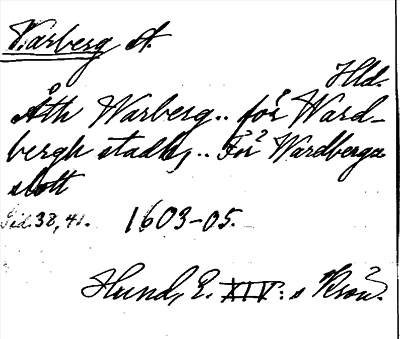 Varberg st.
Hld.
Åth Warberg.. för Ward-
bergh stadh,.. För Wardberga
slott
Sid. 38, 41. 1603-05.
Hund, E. XIV: s Krön.